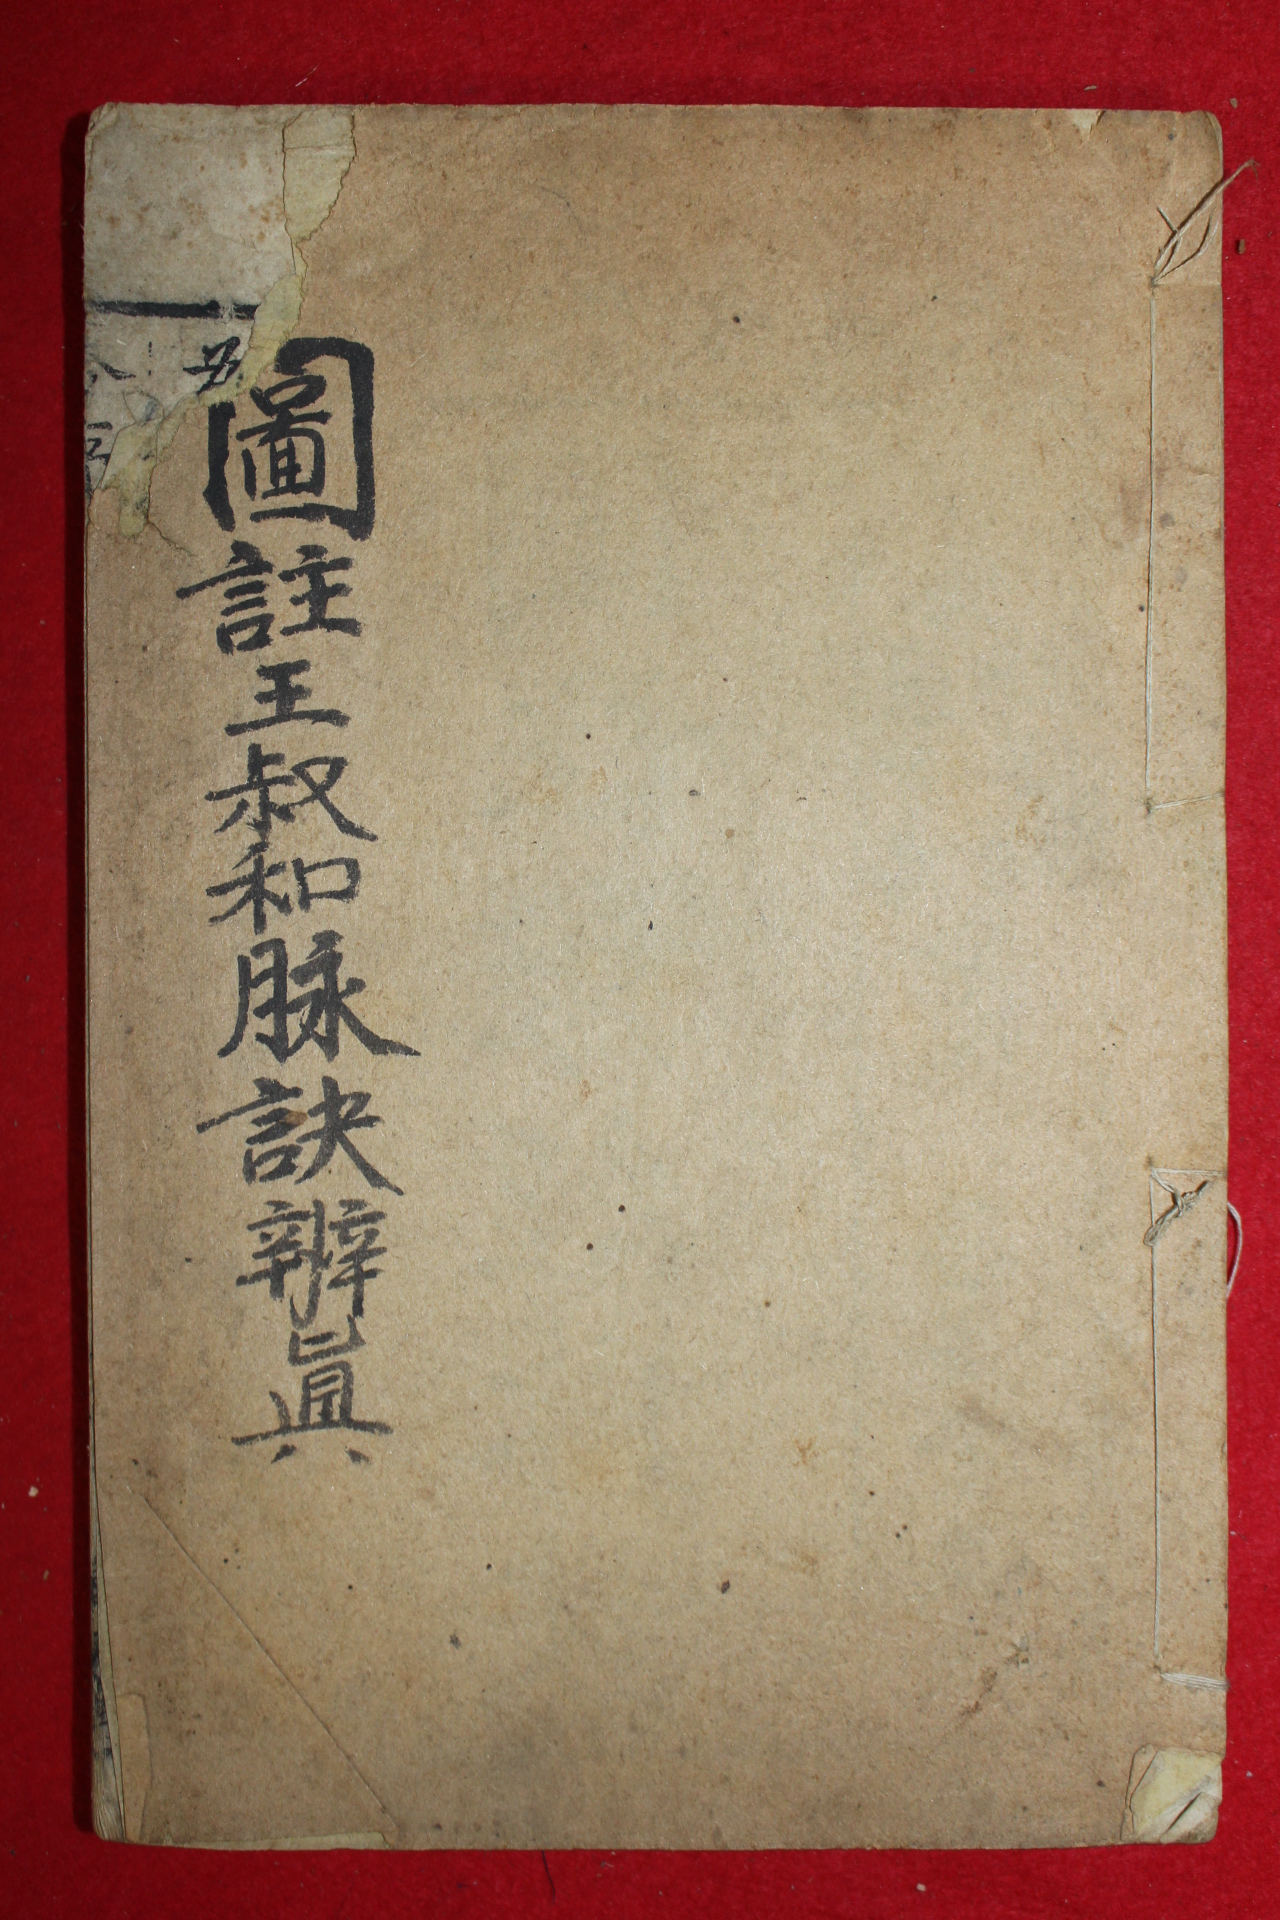 圖註王叔和脉訣辨眞